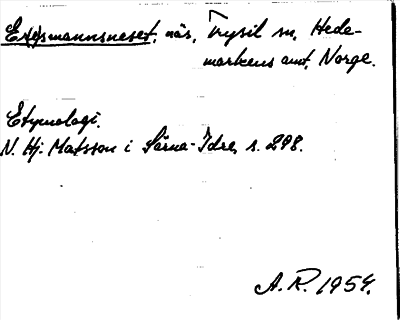 Elgsmannsneset, näs, Trysil sn, Hede-
markens amt, Norge.
Etymologi.
N. Hj. Matsson i Särna-Idre, s. 298.
A. R. 1954.